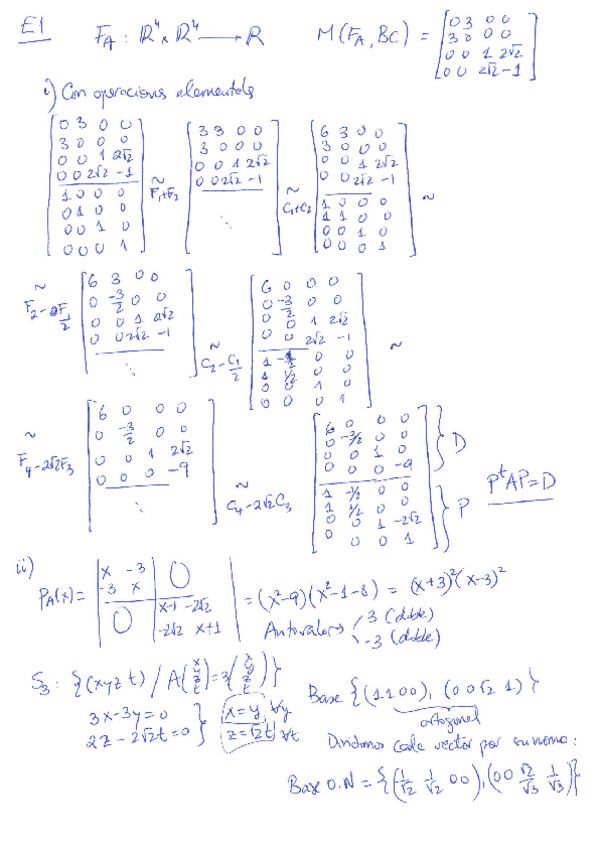 E1
F_A : ℝ⁴ × ℝ⁴ ⟶ ℝ    M(F_A, Bc) = [0 3 0 0; 3 0 0 0; 0 0 1 2√2; 0 0 2√2 -1]
i) Con operaciones elementales
[0 3 0 0; 3 0 0 0; 0 0 1 2√2; 0 0 2√2 -1 | 1 0 0 0; 0 1 0 0; 0 0 1 0; 0 0 0 1] ~ F₁+F₂ [3 3 0 0; 3 0 0 0; 0 0 1 2√2; 0 0 2√2 -1 | ⋱] ~ C₁+C₂ [6 3 0 0; 3 0 0 0; 0 0 1 2√2; 0 0 2√2 -1 | 1 0 0 0; 1 1 0 0; 0 0 1 0; 0 0 0 1] ~
~ [6 3 0 0; 0 -3/2 0 0; 0 0 1 2√2; 0 0 2√2 -1 | ⋱] ~ C₂-C₁/2 [6 0 0 0; 0 -3/2 0 0; 0 0 1 2√2; 0 0 2√2 -1 | 1 -1/2 0 0; 1 1/2 0 0; 0 0 1 0; 0 0 0 1] ~
~ F₄-2√2F₃ [6 0 0 0; 0 -3/2 0 0; 0 0 1 2√2; 0 0 0 -9 | ⋱] ~ C₄-2√2C₃ [6 0 0 0; 0 -3/2 0 0; 0 0 1 0; 0 0 0 -9 | 1 -1/2 0 0; 1 1/2 0 0; 0 0 1 -2√2; 0 0 0 1] } D } P    PᵗAP=D
ii)
P_A(x) = |x -3 0; -3 x; 0 x-1 -2√2; -2√2 x+1| = (x²-9)(x²-1-8) = (x+3)²(x-3)²
Autovalores 3 (doble)
-3 (doble)
S₃ : {(x y z t) / A(x y z t) = 3(x y z t)}
3x-3y=0    x=y, ∀y    Base {(1 1 0 0), (0 0 √2 1)}
2z-2√2t=0    z=√2t ∀t    ortogonal
Dividimos cada vector por su norma:
Base O.N = {(1/√2 1/√2 0 0), (0 0 √2/√3 1/√3)}